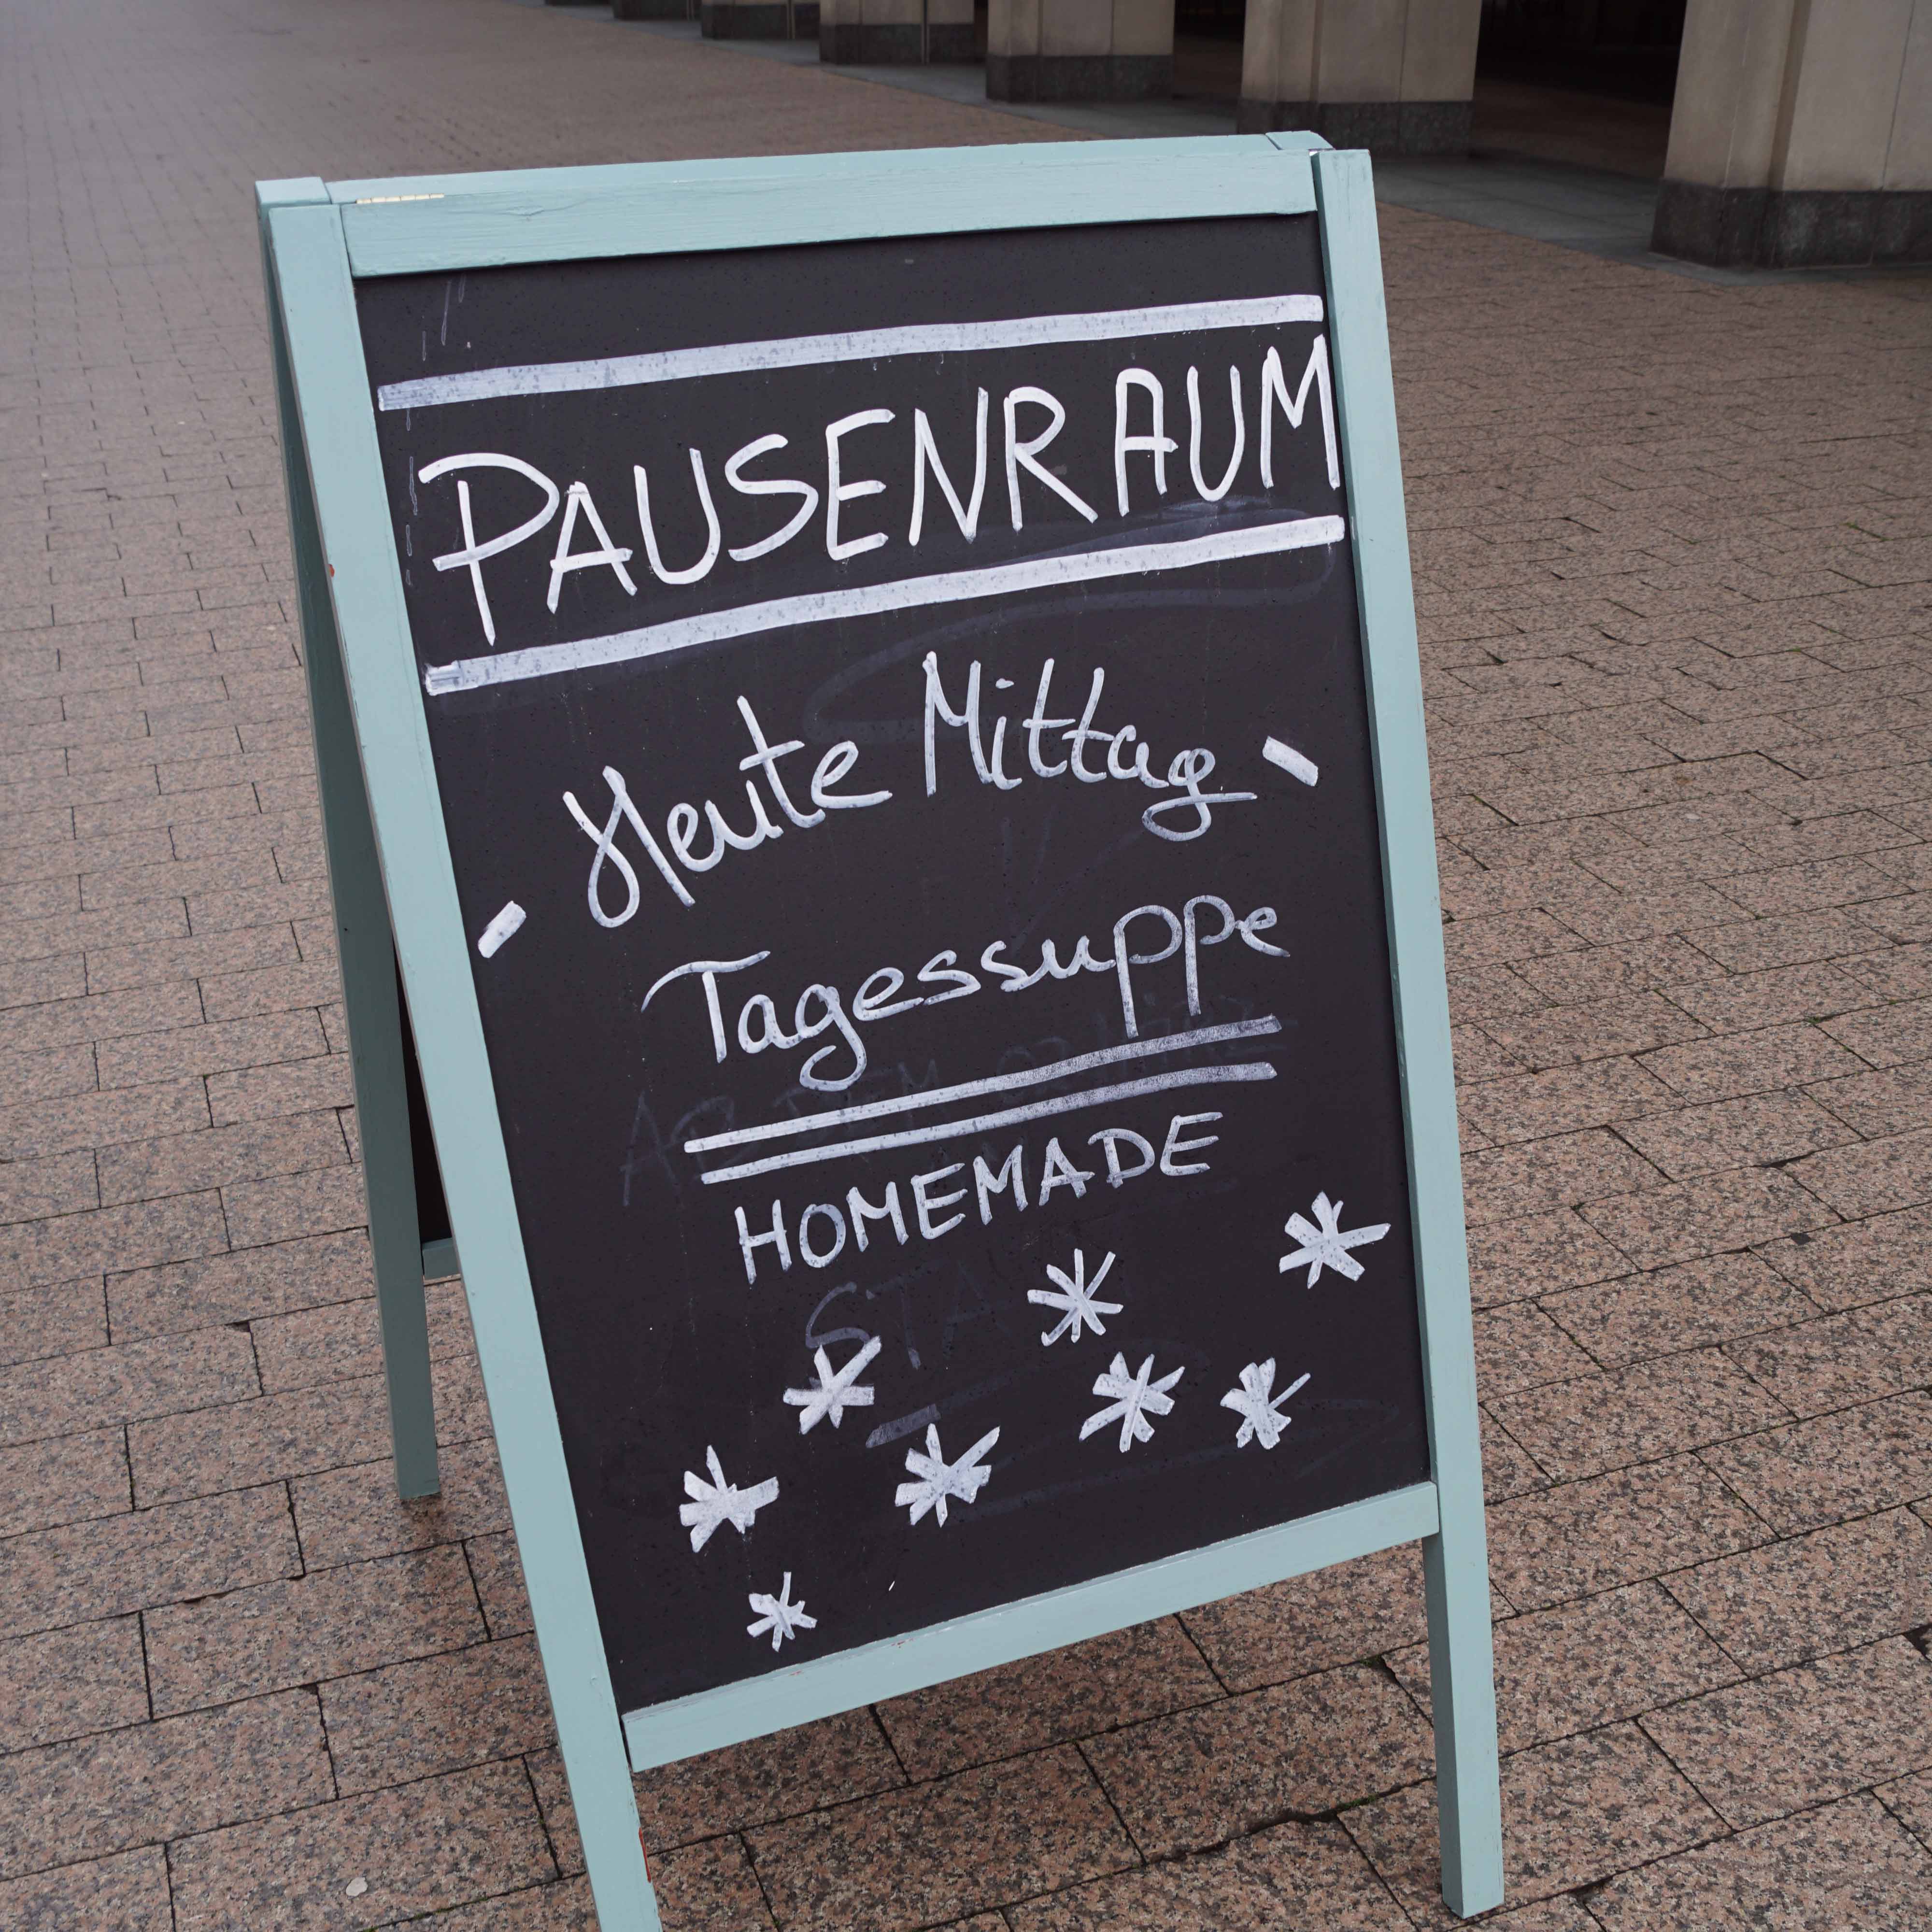 PAUSENRAUM
- Heute Mittag -
Tagessuppe
HOMEMADE